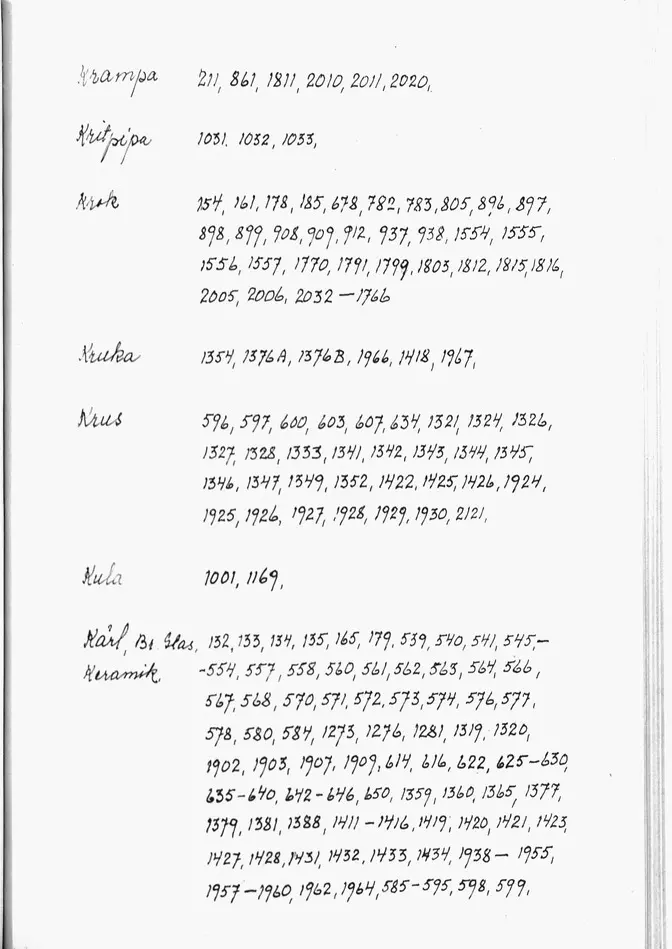 Krampa 211, 861, 1811, 2010, 2011, 2020,
Kritpipa 1031. 1032, 1033,
Krok 154, 161, 178, 185, 678, 782, 783, 805, 896, 897,
898, 899, 908, 909, 912, 937, 938, 1554, 1555,
1556, 1557, 1770, 1791, 1799, 1803, 1812, 1815, 1816,
2005, 2006, 2032 — 1766
Kruka 1354, 1376A, 1376B, 1966, 1418, 1967,
Krus 596, 597, 600, 603, 607, 634, 1321, 1324, 1326,
1327, 1328, 1333, 1341, 1342, 1343, 1344, 1345,
1346, 1347, 1349, 1352, 1422, 1425, 1426, 1924,
1925, 1926, 1927, 1928, 1929, 1930, 2121,
Kula 1001, 1169,
Kärl, Bl. Glas, 132, 133, 134, 135, 165, 179, 539, 540, 541, 545,-
Keramik, -554, 557, 558, 560, 561, 562, 563, 564, 566,
567, 568, 570, 571, 572, 573, 574, 576, 577,
578, 580, 584, 1273, 1276, 1281, 1319, 1320,
1902, 1903, 1907, 1909, 614, 616, 622, 625-630,
635-640, 642-646, 650, 1359, 1360, 1365, 1377,
1379, 1381, 1388, 1411-1416, 1419, 1420, 1421, 1423,
1427, 1428, 1431, 1432, 1433, 1434, 1938- 1955,
1957-1960, 1962, 1964, 585-595, 598, 599,